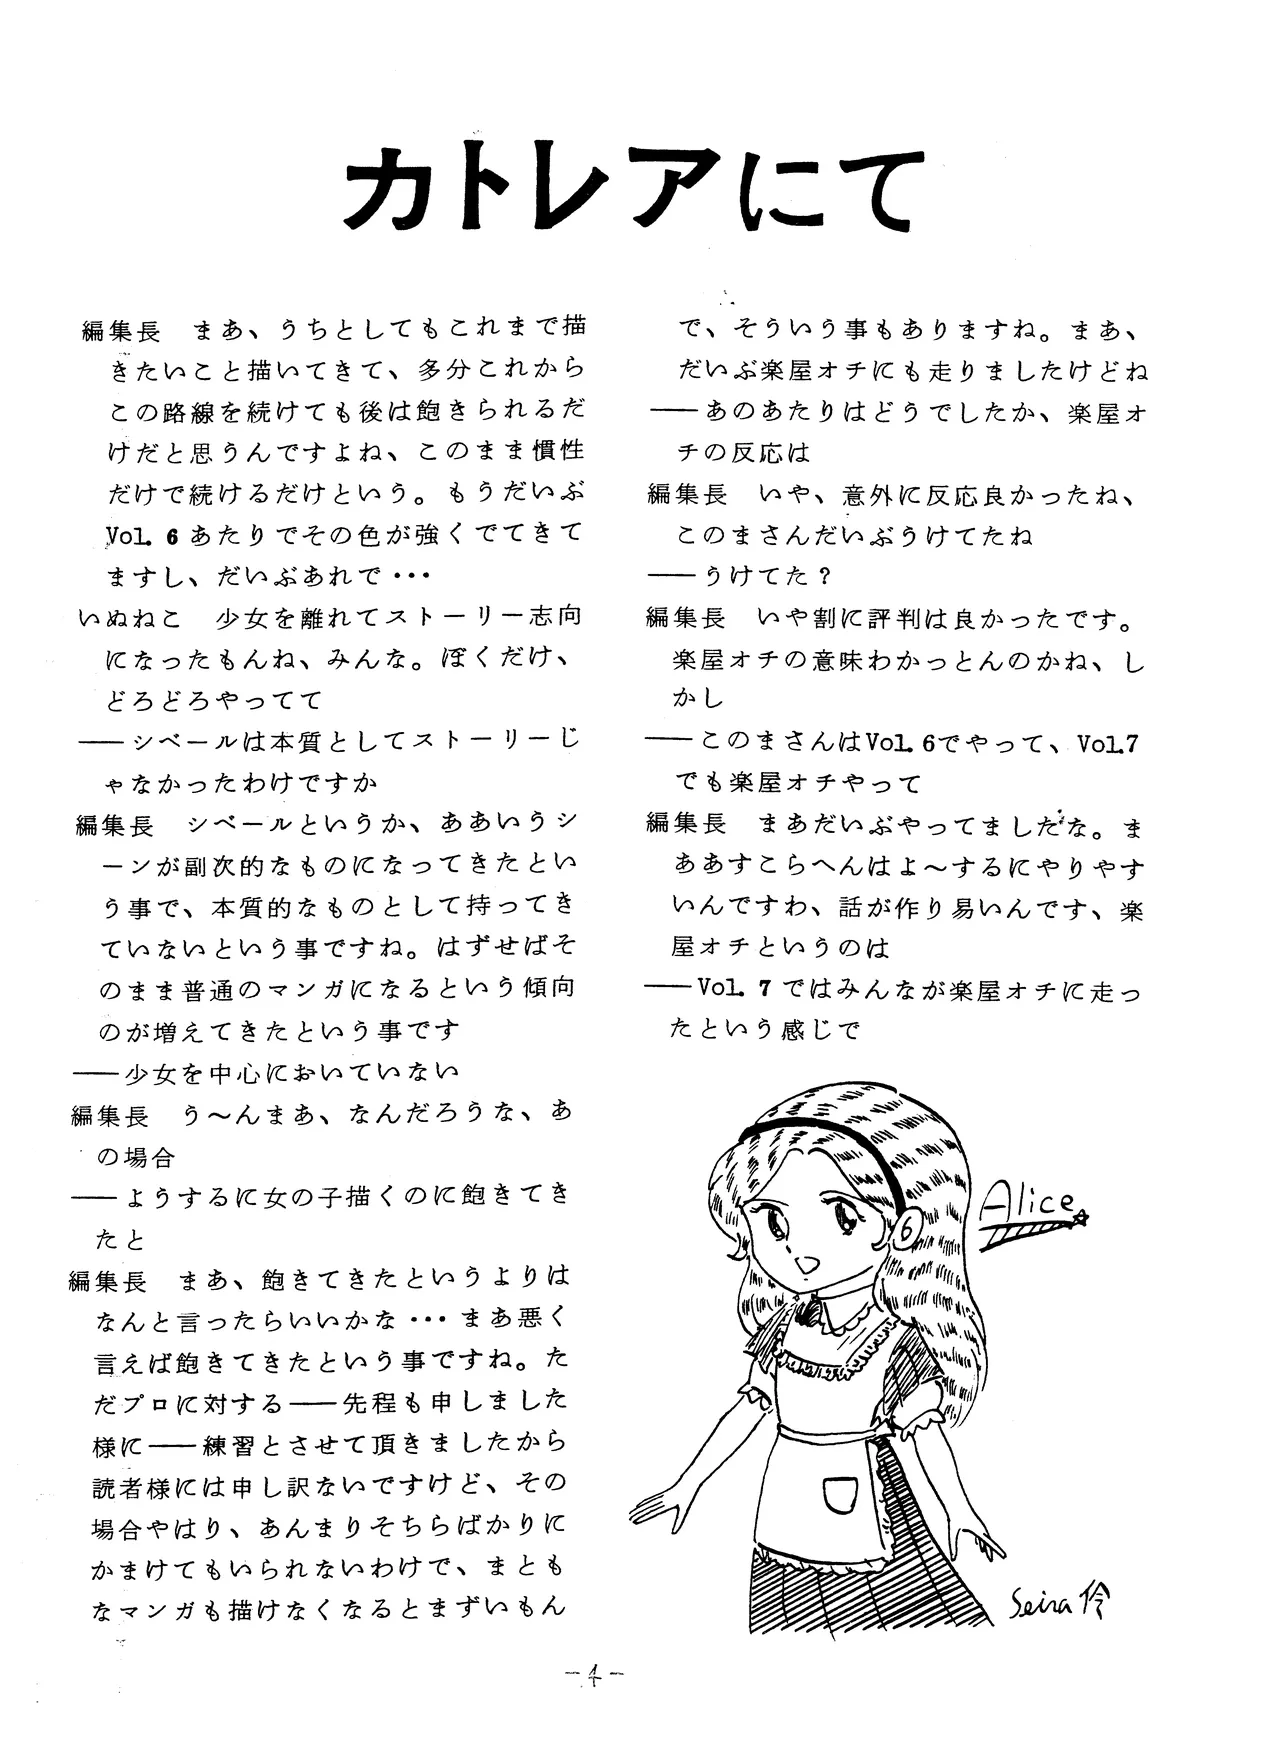 カトレアにて
編集長　まあ、うちとしてもこれまで描
きたいこと描いてきて、多分これから
この路線を続けても後は飽きられるだ
けだと思うんですよね、このまま慣性
だけで続けるだけという。もうだいぶ
Vol. 6あたりでその色が強くでてきて
ますし、だいぶあれで・・・
いぬねこ　少女を離れてストーリー志向
になったもんね、みんな。ぼくだけ、
どろどろやってて
――シベールは本質としてストーリーじ
ゃなかったわけですか
編集長　シベールというか、ああいうシ
ーンが副次的なものになってきたとい
う事で、本質的なものとして持ってき
ていないという事ですね。はずせばそ
のまま普通のマンガになるという傾向
のが増えてきたという事です
――少女を中心においていない
編集長　う～んまあ、なんだろうな、あ
の場合
――ようするに女の子描くのに飽きてき
たと
編集長　まあ、飽きてきたというよりは
なんと言ったらいいかな・・・まあ悪く
言えば飽きてきたという事ですね。た
だプロに対する――先程も申しました
様に――練習とさせて頂きましたから
読者様には申し訳ないですけど、その
場合やはり、あんまりそちらばかりに
かまけてもいられないわけで、まとも
なマンガも描けなくなるとまずいもん
で、そういう事もありますね。まあ、
だいぶ楽屋オチにも走りましたけどね
――あのあたりはどうでしたか、楽屋オ
チの反応は
編集長　いや、意外に反応良かったね、
このまさんだいぶうけてたね
――うけてた？
編集長　いや割に評判は良かったです。
楽屋オチの意味わかっとんのかね、し
かし
――このまさんはVol. 6でやって、Vol.7
でも楽屋オチやって
編集長　まあだいぶやってましたな。ま
ああすこらへんはよ～するにやりやす
いんですわ、話が作り易いんです、楽
屋オチというのは
――Vol. 7ではみんなが楽屋オチに走っ
たという感じで
Alice
Seira 伶
-4-